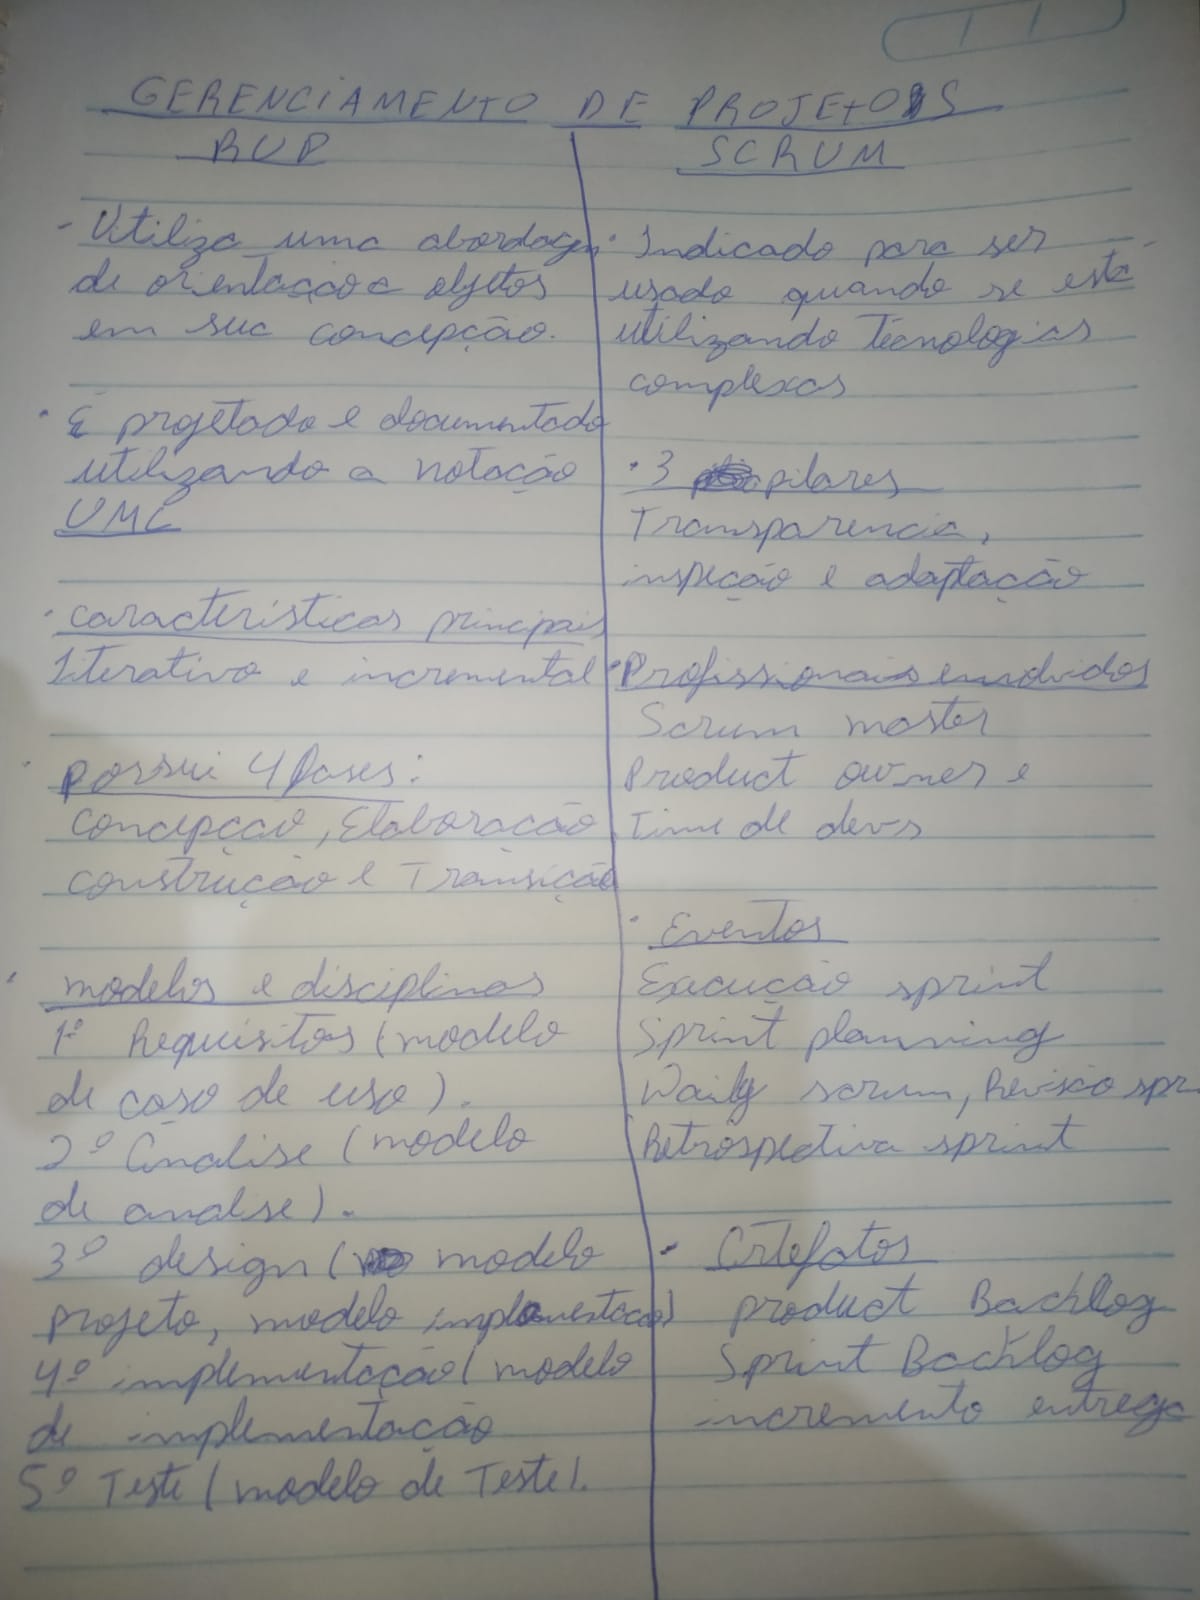 GERENCIAMENTO DE PROJETOS
RUP
- Utiliza uma abordagem
de orientação a objetos
em sua concepção.
· É projetado e documentado
utilizando a notação
UML
· características principais
Iterativo e incremental
· possui 4 fases:
concepção, Elaboração,
construção e Transição
· modelos e disciplinas
1º Requisitos (modelo
de caso de uso).
2º Analise (modelo
de analise).
3º design ( modelo
projeto, modelo implementação)
4º implementação ( modelo
de implementação
5º Teste ( modelo de Teste).
SCRUM
· Indicado para ser
usado quando se está
utilizando Tecnologias
complexas
· 3 pilares
Transparencia,
inspeção e adaptação
· Profissionais envolvidos
Scrum master
Product owner e
Time de devs
· Eventos
Execução sprint
Sprint planning
Daily scrum, Revisão spr
Retrospectiva sprint
· Artefatos
product Backlog
Sprint Backlog
incremento entrega